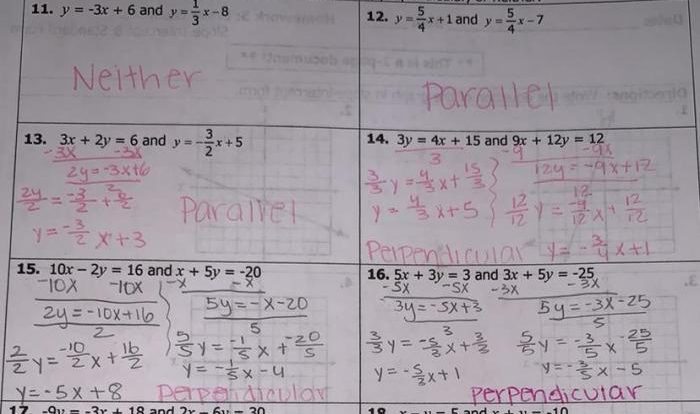 11. y = -3x + 6 and y = 1/3 x - 8
Neither
12. y = 5/4 x + 1 and y = 5/4 x - 7
Parallel
13. 3x + 2y = 6 and y = -3/2 x + 5
-3x -3x
2y = -3x+6
2y/2 = -3/2 + 6/2
y = -3/2 x + 3
Parallel
14. 3y = 4x + 15 and 9x + 12y = 12
3
3/3 y = 4/3 x + 15/3
y = 4/3 x + 5
-9 -9x
12y = -9x + 12
12
12/12 y = -9/12 x + 12/12
y = -3/4 x + 1
Perpendicular
15. 10x - 2y = 16 and x + 5y = -20
-10x -10x
2y = -10x+16
2
2/2 y = -10/2 x + 16/2
y = -5x + 8
-x -x
5y = -x-20
5
5/5 y = -1/5 x + -20/5
y = -1/5 x - 4
Perpendicular
16. 5x + 3y = 3 and 3x + 5y = -25
-5x -5x
3y = -5x+3
3
3/3 y = -5/3 x + 3/3
y = -5/3 x + 1
-3x -3x
5y = -3x-25
5
5/5 y = -3/5 x - 25/5
y = -3/5 x - 5
Perpendicular
17. -9y = -3x + 18 and 2x - 6y = 30
18. x - y = 5 and x + y = -10